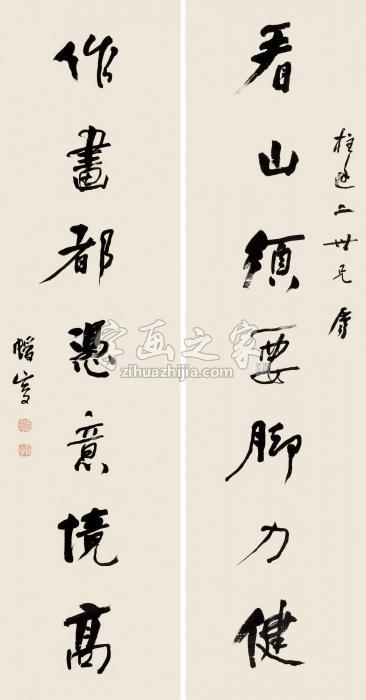 看山須要脚力健
二世兄屬
作畫都憑意境高
字画之家
zihuazhijia.com